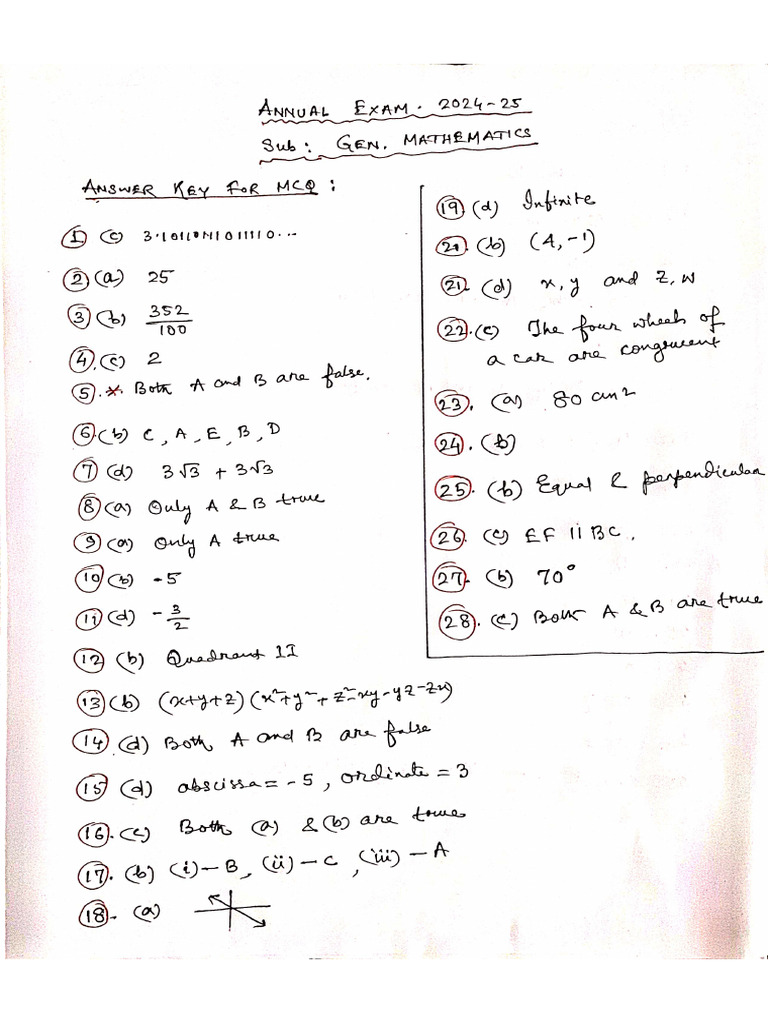 ANNUAL EXAM. 2024-25
Sub: GEN. MATHEMATICS
ANSWER KEY FOR MCQ:
1 (c) 3.1011011101111 0...
2 (a) 25
3 (b) 352/100
4. (c) 2
5. * Both A and B are false.
6. (b) C, A, E, B, D
7 (d) 3√3 + 3√3
8 (a) Only A & B true
9 (a) Only A true
10 (b) -5
11 (d) -3/2
12 (b) Quadrant II
13 (b) (x+y+z)(x²+y²+z²-xy-yz-zx)
14 (d) Both A and B are false
15 (d) abscissa = -5, ordinate = 3
16. (c) Both (a) & (b) are true
17. (b) (i)-B, (ii)-C, (iii)-A
18. (a)
19 (d) Infinite
20. (b) (4,-1)
21. (d) x, y and z, w
22. (c) The four wheels of
a car are congruent
23. (a) 80 cm²
24. (b)
25. (b) Equal & perpendicular
26. (c) EF || BC.
27. (b) 70°
28. (c) Both A & B are true